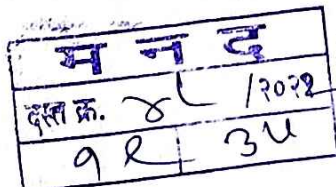 म न द
दस्त क्र. ४८ /२०२१
१२ ३५